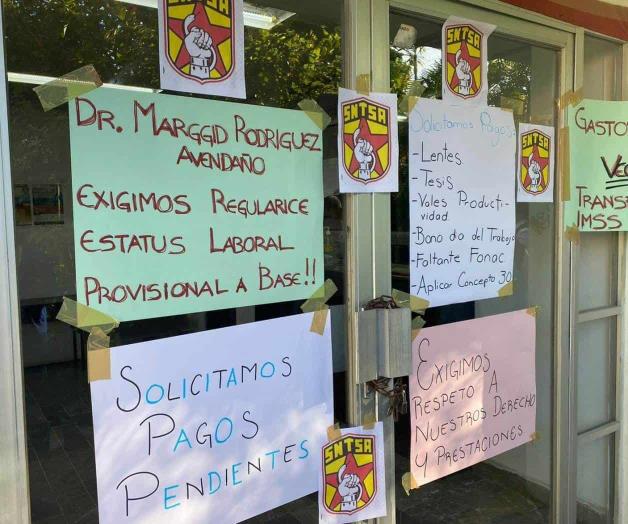 SNTSA
DR. MARGGID RODRIGUEZ
AVENDAÑO
EXIGIMOS REGULARICE
ESTATUS LABORAL
PROVISIONAL A BASE!!
SNTSA
SNTSA
Solicitamos Pagos:
-Lentes
-Tesis
-Vales Producti-
vidad
-Bono día del Trabajo
-Faltante Fonac
-Aplicar Concepto 30
SNTSA
GASTO
IMSS
SOLICITAMOS
PAGOS
PENDIENTES
SNTSA
EXIGIMOS
RESPETO A
NUESTROS DERECHO
Y PRESTACIONES